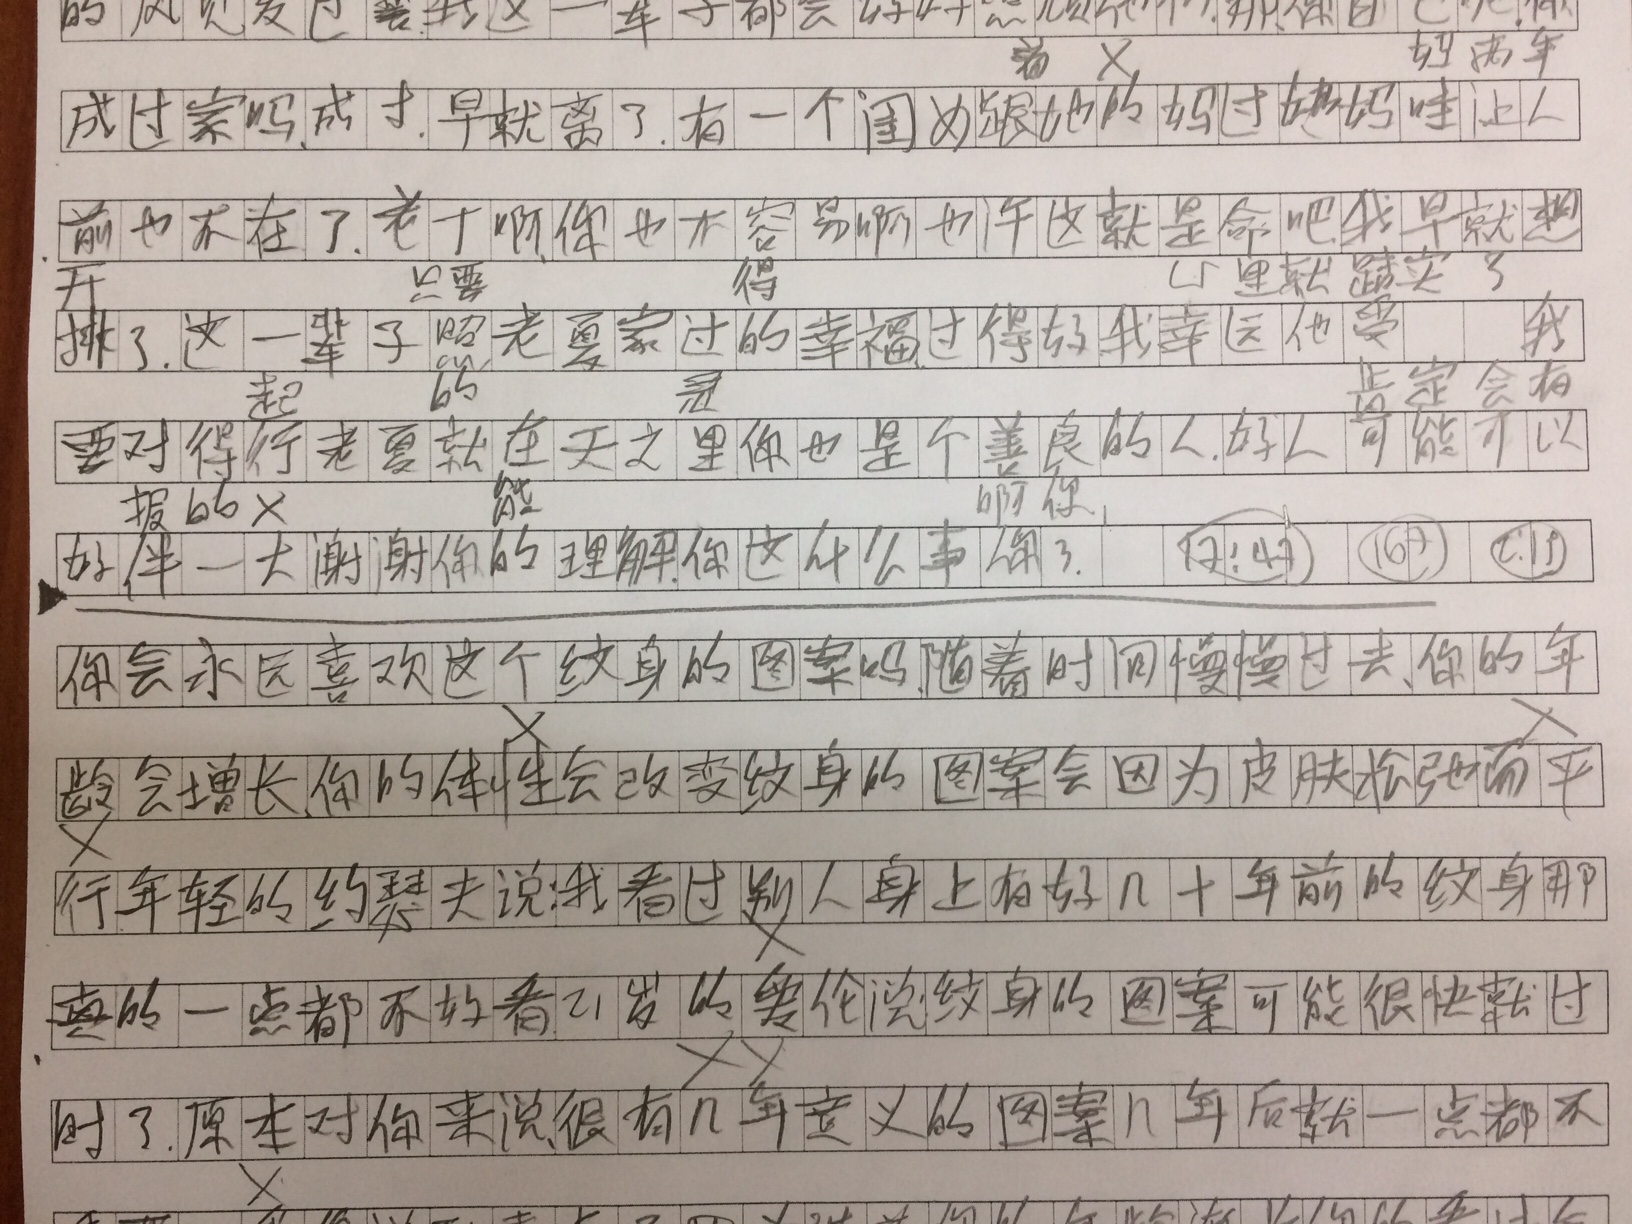 成过家吗,成过.早就离了.有一个闺女跟她的妈过她妈哇让人
着 X 好两年
前也不在了.老丁啊,你也不容易啊也许这就是命吧.我早就想
开 只要 得 心里就踏实了
排了.这一辈子照老夏家过的幸福过得好我幸运他受 我
起 的 冠 肯定会有
要对得行老夏就在天之里你也是个善良的人.好人可能才以
报的X 能 啊你,
好伴一大谢谢你的理解.你这什么事你了. (7:47) (167) (2.15)
你会永远喜欢这个纹身的图案吗.随着时间慢慢过去、你的年
X X
龄会增长.你的体性会改变纹身的图案会因为皮肤松弛而平
X
行年轻的约瑟夫说:我看过别人身上有好几十年前的纹身那
X
真的一点都不好看21岁的爱伦说纹身的图案可能很快就过
X X
时了.原本对你来说很有几年意义的图案几年后就一点都不
X